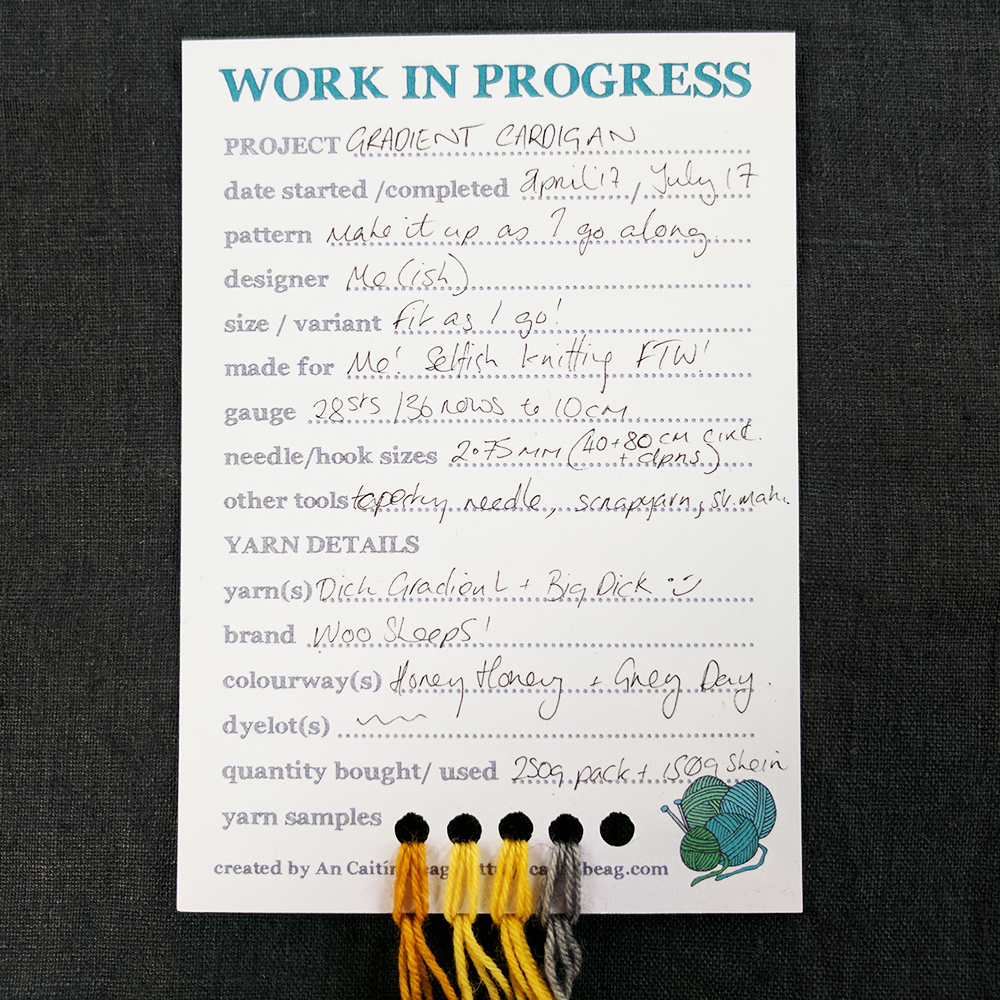 WORK IN PROGRESS
PROJECT GRADIENT CARDIGAN
date started /completed April '17 / July 17
pattern Make it up as I go along.
designer Me (ish)
size / variant fit as I go!
made for Me! Selfish knitting FTW!
gauge 28sts /36 rows to 10cm
needle/hook sizes 2.75mm (40+80cm circ.
+ dpns)
other tools tapestry needle, scrapyarn, st. mak.
YARN DETAILS
yarn(s) Dick Gradient + Big Dick :)
brand Woo Sheeps!
colourway(s) Honey Honey + Grey Day.
dyelot(s)
quantity bought/ used 250g pack + 150g skein
yarn samples
created by An Caitín beag.com